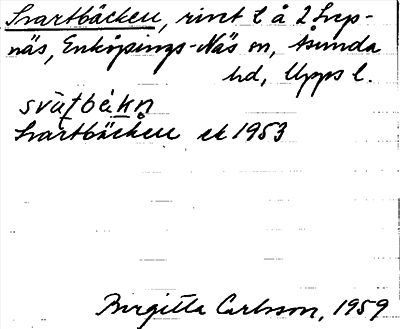 Svartbäcken, rint l å 2 Svep-
näs, Enköpings-Näs sn, Åsunda
hd, Upps l.
svàʈbèkn̥
Svartbäcken ek 1953
Birgitta Carlsson, 1959